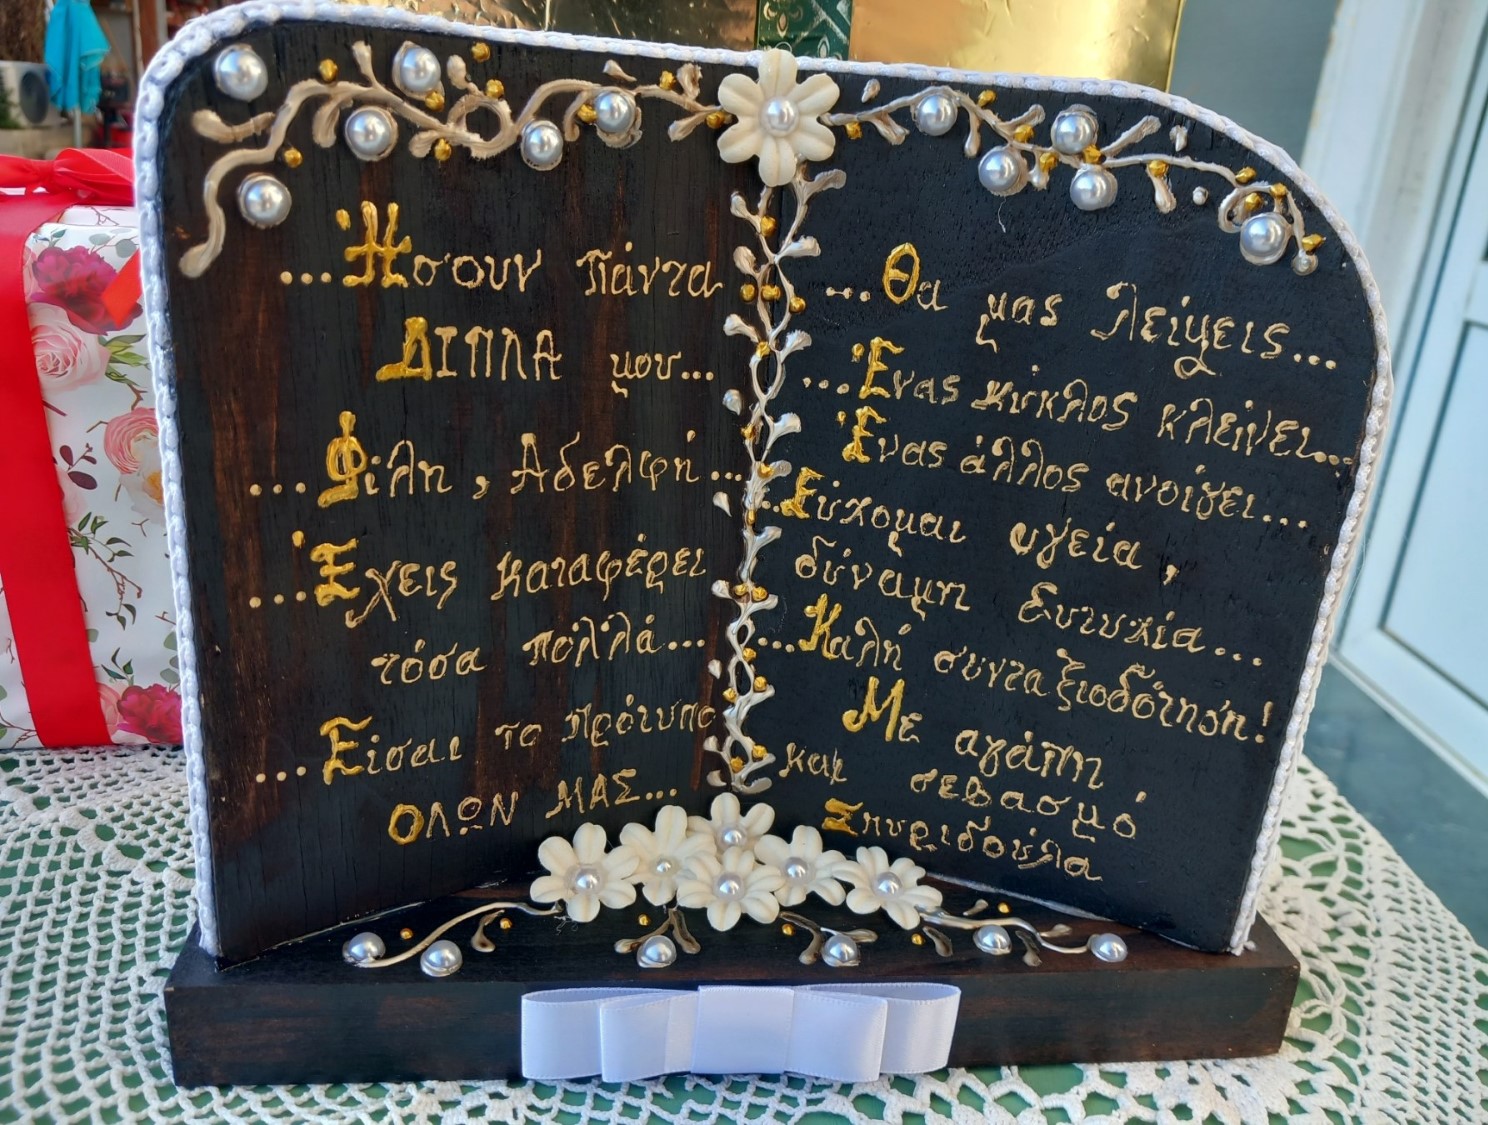 ...Ήσουν πάντα
ΔΙΠΛΑ μου...
...Φίλη, Αδελφή...
...Έχεις καταφέρει
τόσα πολλά...
...Είσαι το πρότυπο
ΟΛΩΝ ΜΑΣ...
...Θα μας λείψεις...
...Ένας κύκλος κλείνει...
Ένας άλλος ανοίγει...
...Εύχομαι υγεία,
δύναμη ευτυχία...
...Καλή συνταξιοδότηση!
Με αγάπη
και σεβασμό
Σπυριδούλα